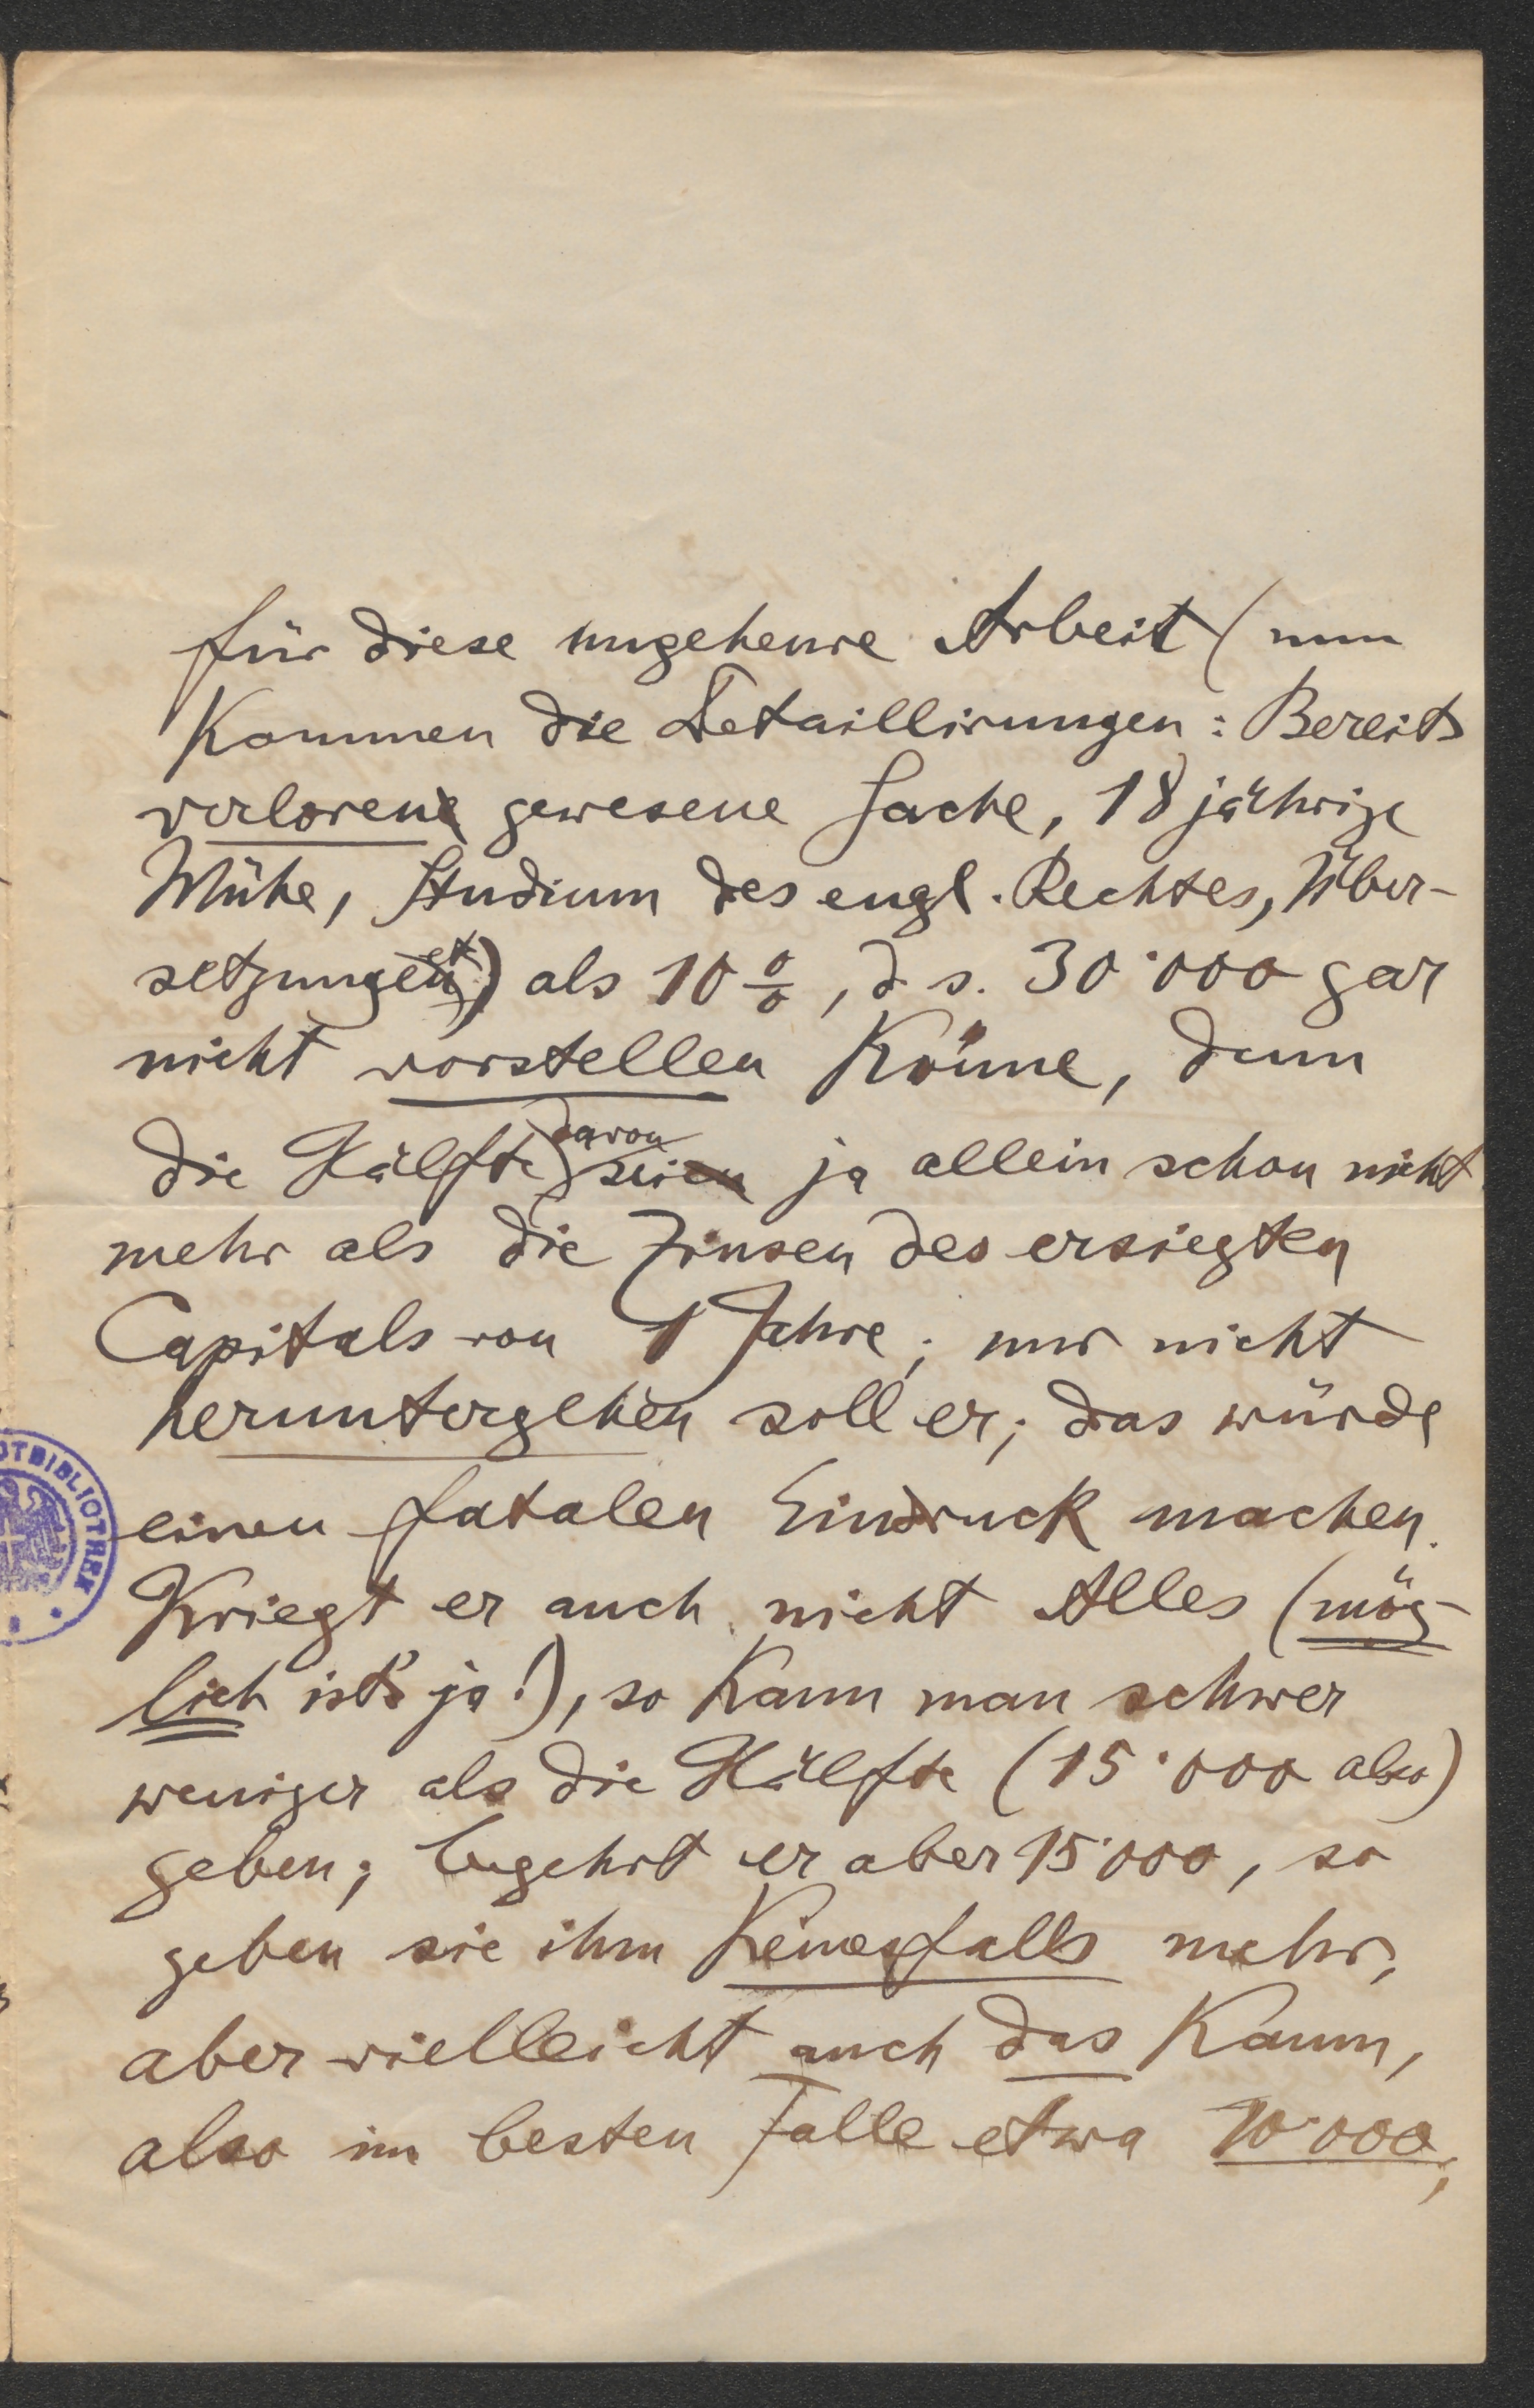 für diese ungeheure Arbeit (nun
kommen die Detaillirungen: Bereits
verlorene gewesene Sache, 18 jährige
Mühe, Studium des engl. Rechtes, Über-
setzungen etc) als 10 %, d. s. 30˙000 gar
nicht vorstellen könne, denn
die Hälfte davon seien ja allein schon nicht
mehr als die Zinsen des ersiegten
Capitals von 1 Jahre; nur nicht
heruntergehen soll er; das würde
einen fatalen Eindruck machen.
Kriegt er auch nicht Alles (mög-
lich ist's ja!), so kann man schwer
weniger als die Hälfte (15˙000 also)
geben; begehrt er aber 15˙000, so
geben sie ihm keinesfalls mehr,
aber vielleicht auch das kaum,
also im besten Falle etwa 10˙000;
OTBIBLIOTHEK